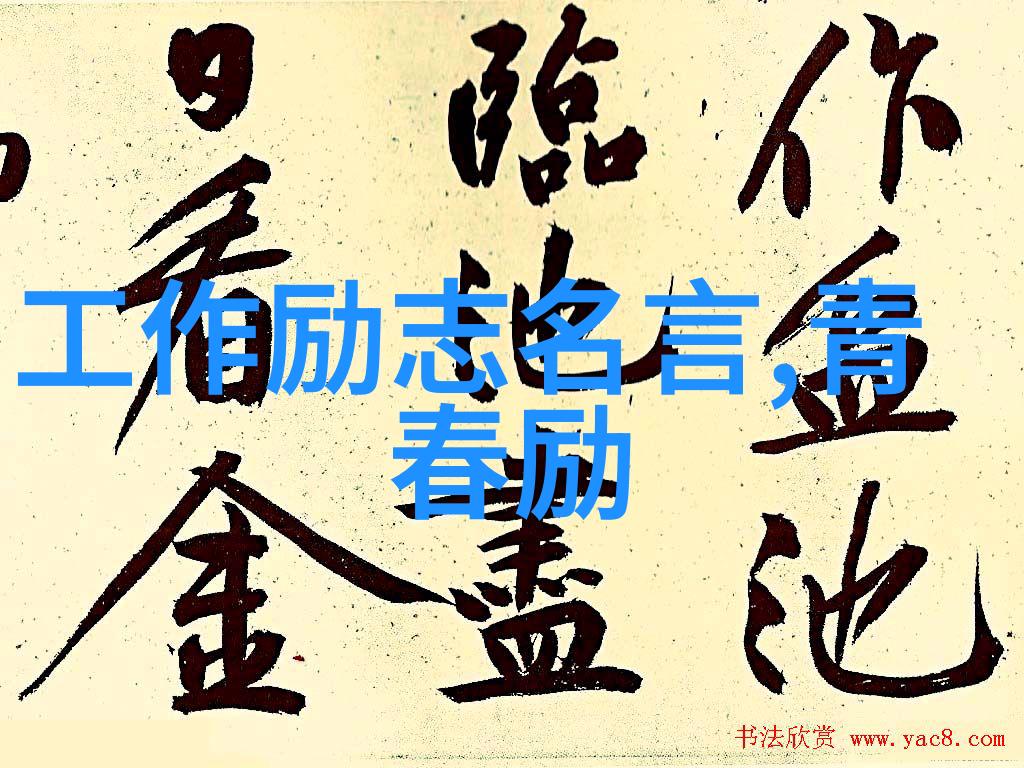 作盆池
臨池盡
日看金
工作励志名言,青
春励
书法欣赏 www.yac8.com